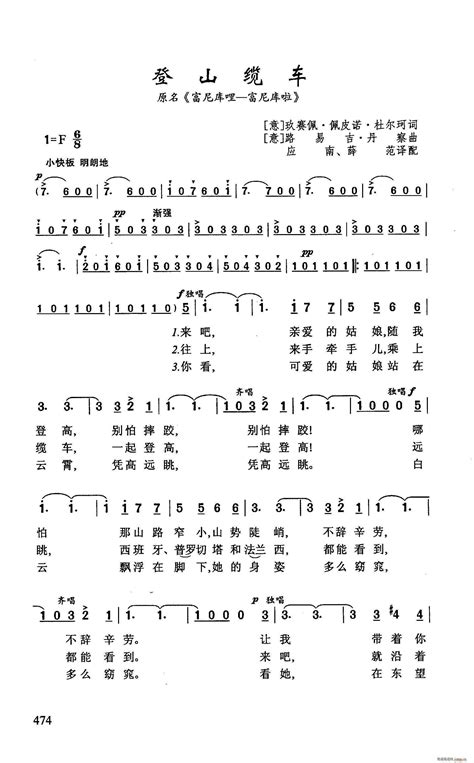 登山缆车
原名《富尼库哩—富尼库啦》
[意]玖赛佩·佩皮诺·杜尔珂词
1=F 6/8
[意]路易吉·丹察曲
应南、薛范译配
小快板 明朗地
p
(7· 600 | 7· 600 | 7· 600 | 7· 600 | 107601 | 107601 |
pp 渐强
107601 | 107601 | 503303 | 503303 | 503303 | 503303 |
f
1· 1· | 201601 | 503304 | 503304 | 502201 | 101101 |: 101101 |
f独唱
101101 | 10110) 5 | 1· 1· | 1 7 7 | 5 5 6 6 |
1.来吧, 亲爱的姑娘,随我
2.往上, 来手牵手儿,乘上
3.你看, 可爱的姑娘站在
齐唱 独唱f
3· 3· | 3 3 2 1 | 1· 1· | 1 0 3 2 | 1· 1· | 1000 5 |
登高, 别怕摔跤, 别怕摔跤! 哪
缆车, 一起登高, 一起登高! 远
云霄, 凭高远眺, 凭高远眺。 白
1· 1· | 1 7 7 | 5 5 6 6 | 3· 3· | 3 3 2 1 | 1· 1· |
怕 那山路窄小,山势陡峭, 不辞辛劳,
眺, 西班牙、普罗切塔和法兰西, 都能看到,
云 飘浮在脚下,她的身姿 多么窈窕,
齐唱 p 独唱
1 0 3 2 | 1· 1· | 1000 1 | 3· 3· | 3 #4 4 |
不辞辛劳。 让我 带着你
都能看到。 来吧, 就沿着
多么窈窕。 看她, 在东望
474